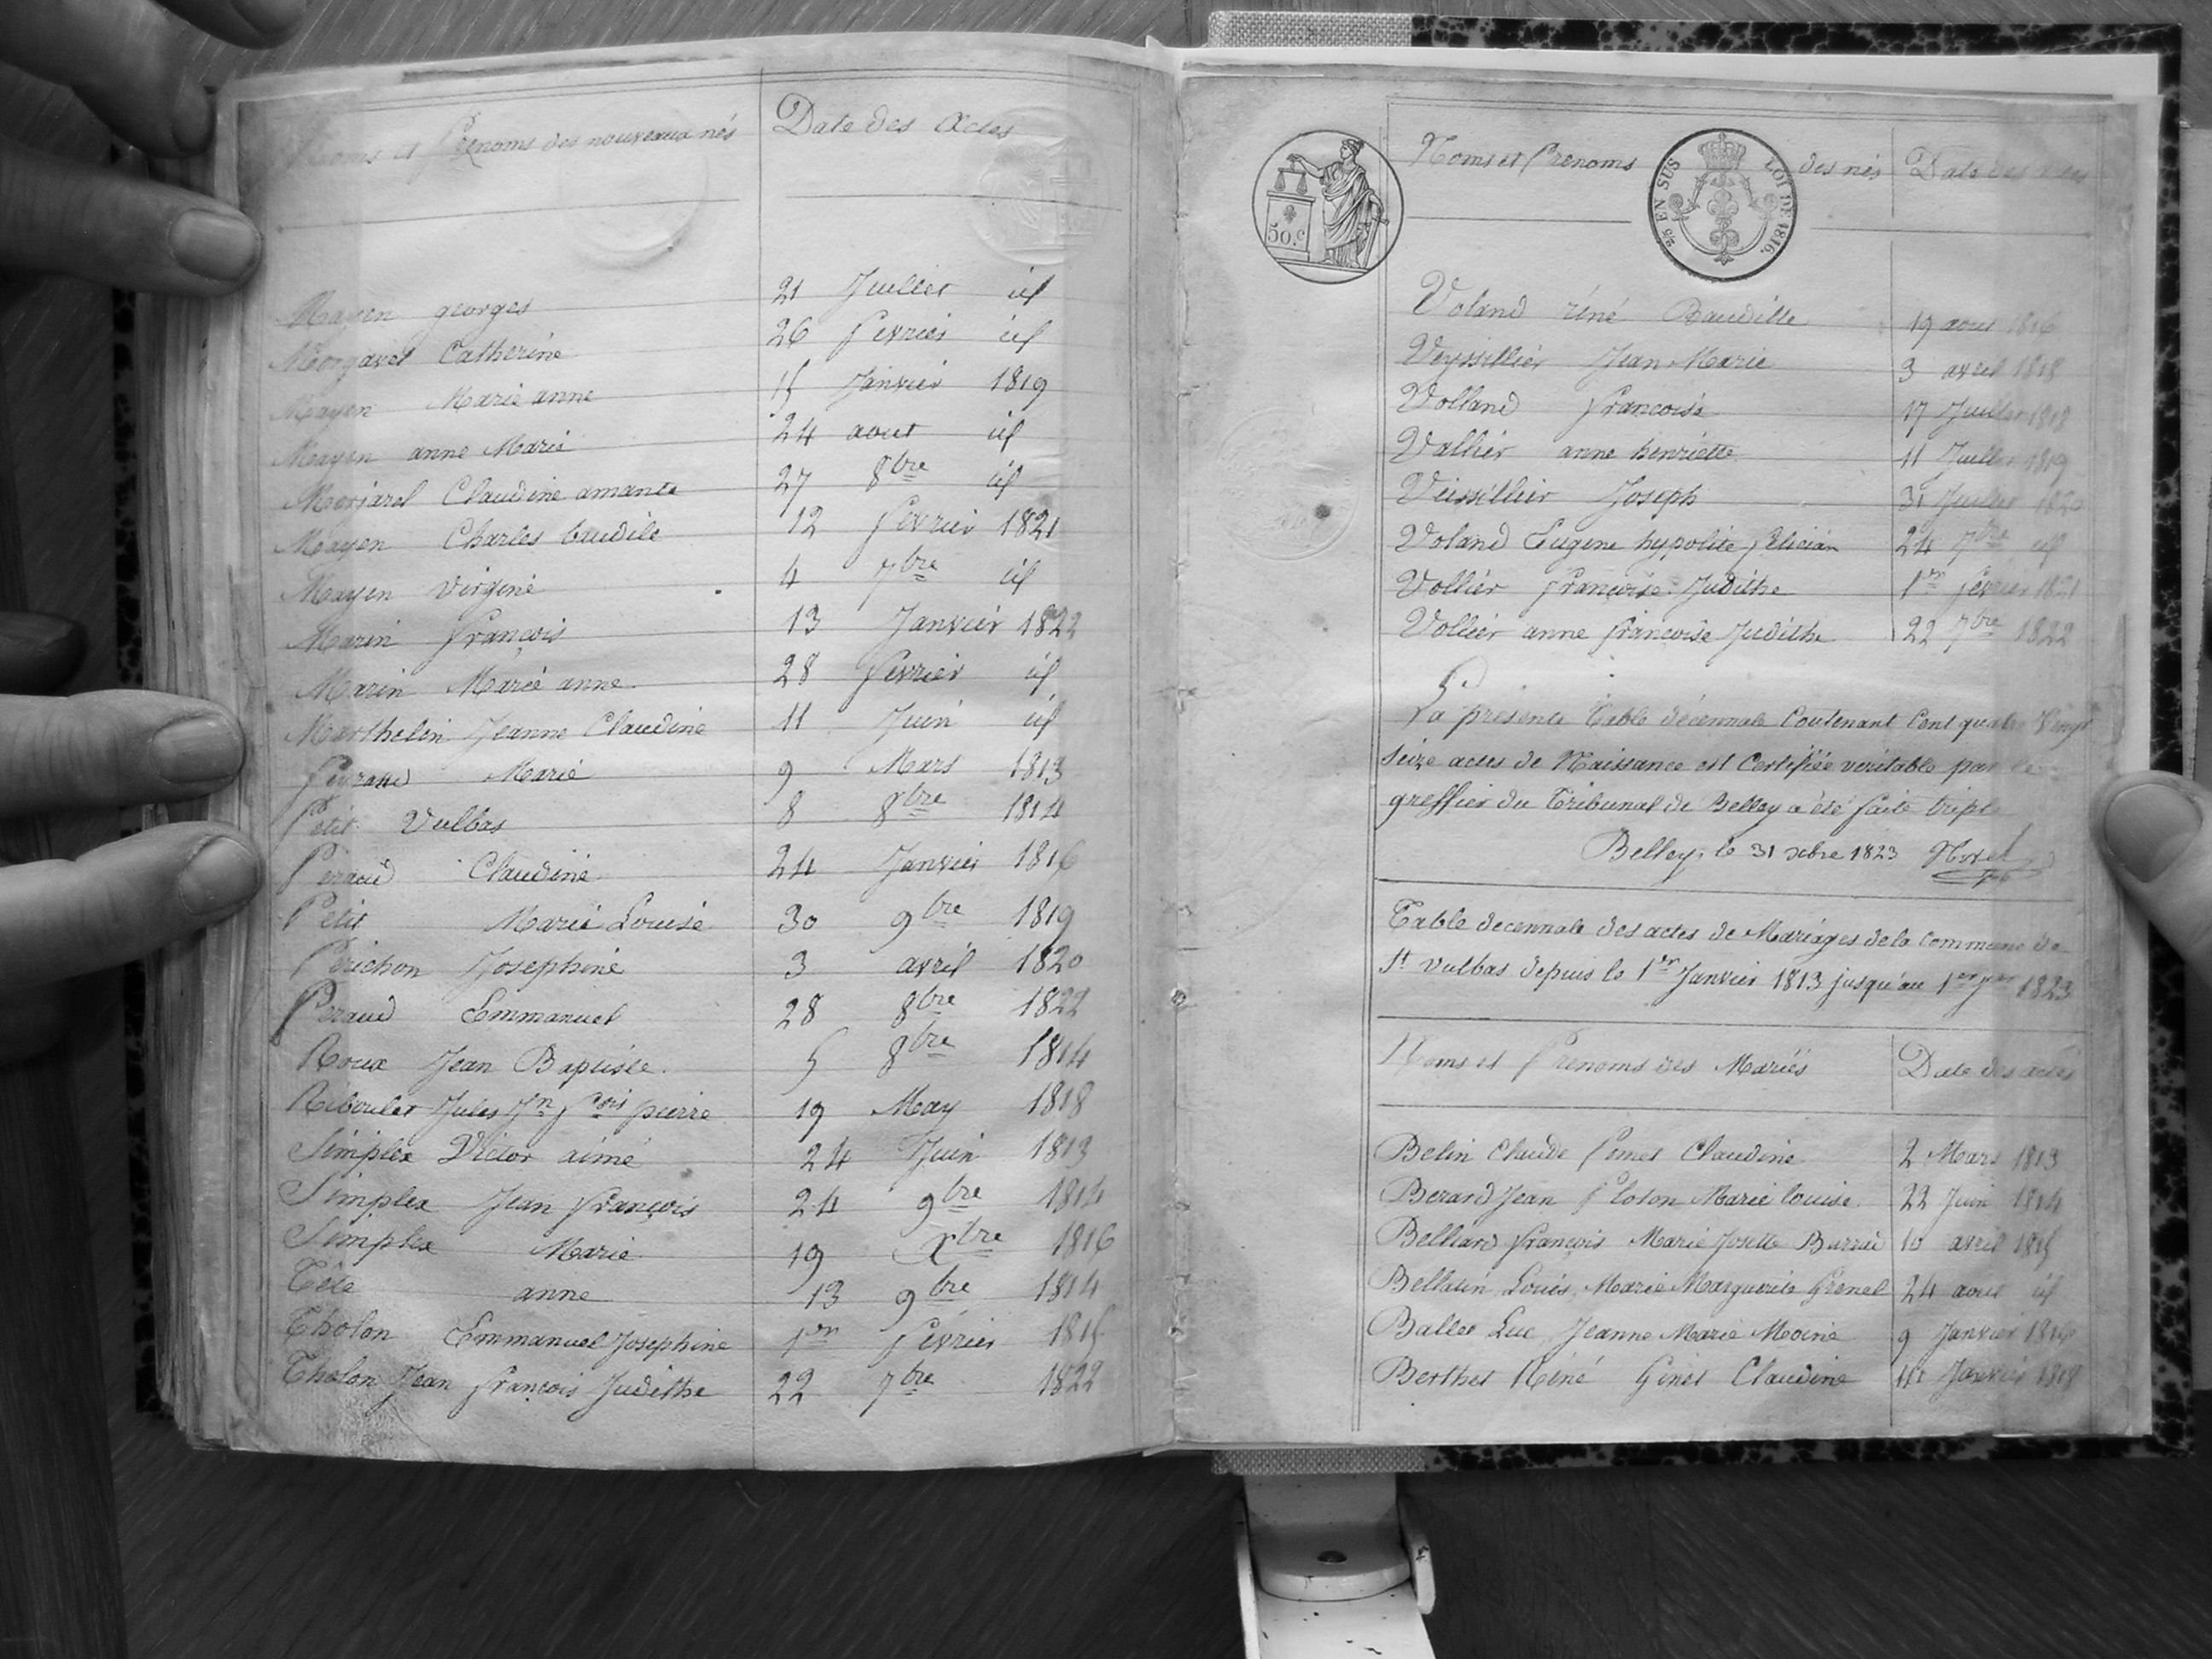 Noms et Prenoms des nouveaux nés Date des Actes
Mayen georges 21 Juillet id
Morgavel Catherine 26 fevrier id
Mayen Marie anne 15 Janvier 1819
Mayen anne Marie 24 aout id
Morjarel Claudine amante 27 8bre id
Mayen Charles baudile 12 fevrier 1821
Mayen virginie 4 7bre id
Marin françois 13 Janvier 1822
Marin Marie anne 28 fevrier id
Marthelin Jeanne Claudine 11 Juin id
Peyraud Marie 9 Mars 1813
Petit Vulbas 8 8bre 1814
Peraud Claudine 24 Janvier 1816
Petit Marie Louise 30 9bre 1819
Perichon Josephine 3 avril 1820
Peraud Emmanuel 28 8bre 1822
Roux Jean Baptiste. 5 8bre 1814
Riboulet Jules Jn fcois pierre 19 May 1818
Simplex Victor aimé 24 Juin 1813
Simplex Jean françois 24 9bre 1814
Simplex Marie 19 Xbre 1816
Tête anne 13 9bre 1814
Tholon Emmanuel Josephine 1er fevrier 1815
Tholon Jean françois Judithe 22 7bre 1822
50.c
2/5 EN SUS LOI DE 1816.
Noms et Prenoms des nés Date des
Voland réné Baudille 19 aout 1816
Veyssillier Jean Marie 3 avril 1818
Volland francoise 17 Juillet 1818
Vallier anne henriette 11 Juillet 1819
Veissillier Joseph 31 Juillet 1820
Voland Eugene hypolite felician 24 7bre id
Vollier françoise Judithe 1er fevrier 1821
Vollier anne francoise Judithe 22 7bre 1822
La presente table décennale Contenant Cent quatre Vingt
Seize actes de Naissance est Certifiée veritable par le
greffier du Tribunal de Belley a été faite triple
Belley, le 31 xbre 1823
Table decennale des actes de Mariages de la Commune de
St vulbas depuis le 1er Janvier 1813 jusqu'au 1er jer 1823
Noms et Prenoms des Mariés Date des actes
Belin Claude Pemet Claudine 2 Mars 1813
Berard Jean Ploton Marie louise 22 Juin 1814
Belliard françois Marie Josette Barrud 10 avril 1815
Bellatin Louis, Marie Marguerite Grenel 24 aout id
Ballet Luc Jeanne Marie Moirie 9 Janvier 1816
Berthet Réné Genet Claudine Janvier 1818